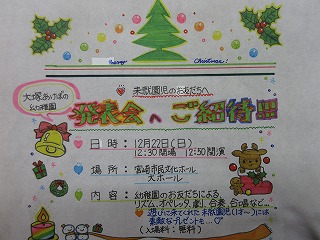 Merry Christmas!
未就園児のお友だちへ
大塚あけぼの
幼稚園
発表会へご招待!!!
日時：12月22日(日)
12:30開場 12:50開演
場所：宮崎市民文化ホール
大ホール
内容：幼稚園のお友だちによる
リズム、オペレッタ、劇、合奏、合唱など…
遊びに来てくれた未就園児(1才～)には
素敵なプレゼントも…♡
(入場料：無料)